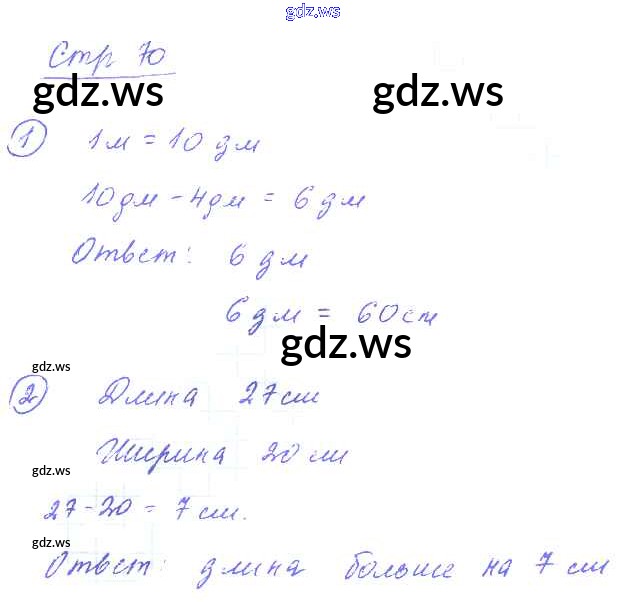 gdz.ws
Стр 70
gdz.ws gdz.ws
1 1м = 10 дм
10дм - 4дм = 6 дм
Ответ: 6 дм
6 дм = 60см
gdz.ws
gdz.ws
2 Длина 27см
Ширина 20 см
gdz.ws
27-20 = 7 см.
gdz.ws
Ответ: длина больше на 7 см